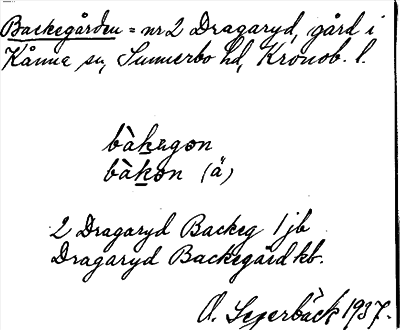 Backegården = nr 2 Dragaryd, gård i
Kånna sn, Sunnerbo hd, Kronob. l.
bàkagon
bàkon (ä)
2 Dragaryd Backeg 1 jb
Dragaryd Backegård kb.
O. Segerbäck 1937.